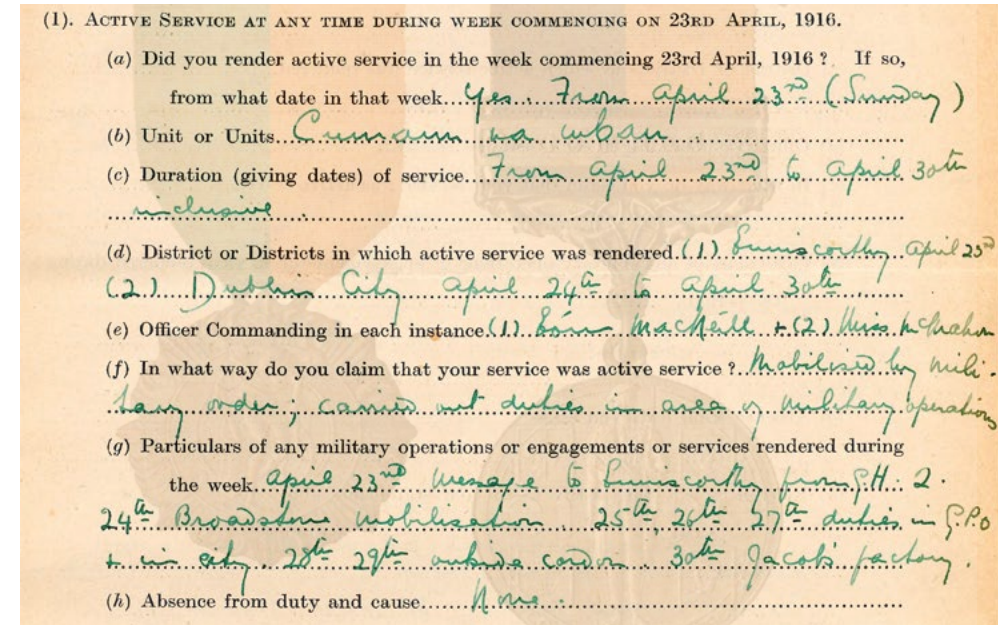 (1). ACTIVE SERVICE AT ANY TIME DURING WEEK COMMENCING ON 23RD APRIL, 1916.
(a) Did you render active service in the week commencing 23rd April, 1916? If so,
from what date in that week...Yes. From April 23rd (Sunday)
(b) Unit or Units. Cumann na mban
(c) Duration (giving dates) of service...From April 23rd to April 30th
inclusive.
(d) District or Districts in which active service was rendered. (1) Enniscorthy April 23rd
(2) Dublin City April 24th to April 30th
(e) Officer Commanding in each instance. (1) Eóin MacNeill + (2) Miss McMahon
(f) In what way do you claim that your service was active service?..Mobilised by mili-
tary order; carried out duties in area of military operations
(g) Particulars of any military operations or engagements or services rendered during
the week. April 23rd Message to Enniscorthy from G.H.Q.
24th Broadstone mobilisation. 25th, 26th 27th duties in G.P.O
+ in city. 28th 29th outside cordon. 30th Jacob's factory.
(h) Absence from duty and cause......None.